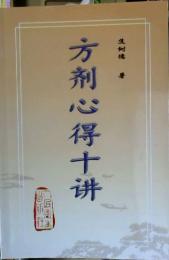 焦树德 著
方剂心得十讲